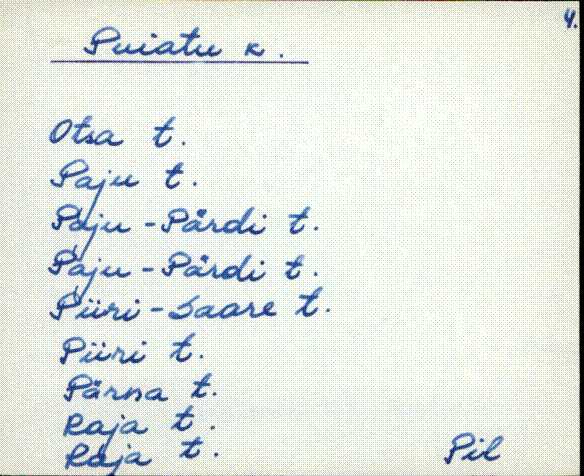 4.
Puiatu k.
Otsa t.
Paju t.
Paju-Pärdi t.
Paju-Pärdi t.
Piiri-Saare t.
Piiri t.
Pärna t.
Raja t.
Raja t.
Pil